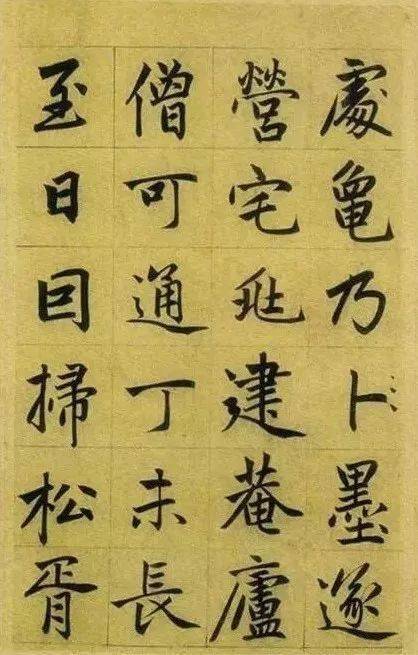 處龜乃卜墨遂
營宅兆建菴廬
僧可通丁未長
至日回掃松胥